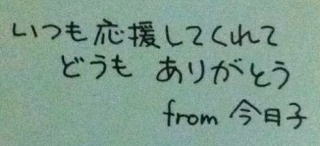 いつも応援してくれて
どうも ありがとう
from 今日子